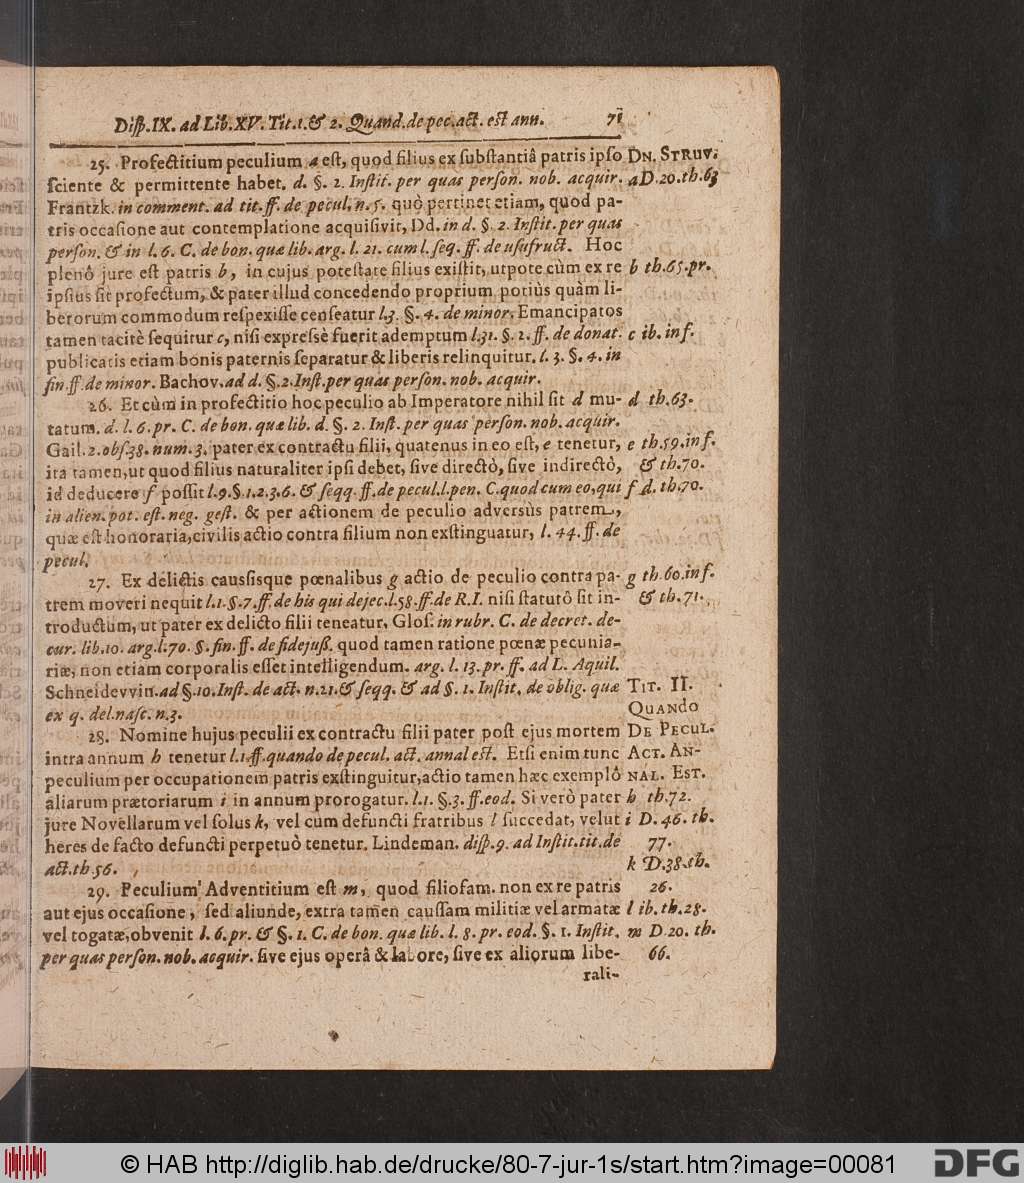 Diſp. IX. ad Lib. XV. Tit. 1. & 2. Quand. de pec. act. est ann. 71
25. Profectitium peculium a est, quod filius ex ſubſtantiâ patris ipſo
ſciente & permittente habet. d. §. 2. Inſtit. per quas perſon. nob. acquir.
Frantzk. in comment. ad tit. ff. de pecul. n. 5. quò pertinet etiam, quod pa-
tris occaſione aut contemplatione acquiſivit, Dd. in d. §. 2. Inſtit. per quas
perſon. & in l. 6. C. de bon. quæ lib. arg. l. 21. cum l. ſeq. ff. de uſufruct. Hoc
plenô jure eſt patris b, in cujus poteſtate filius exiſtit, utpote cùm ex re
ipſius ſit profectum, & pater illud concedendo proprium potiùs quàm li-
berorum commodum reſpexiſſe cenſeatur l. 3. §. 4. de minor. Emancipatos
tamen tacitè ſequitur c, niſi expreſsè fuerit ademptum l. 31. §. 2. ff. de donat.
publicatis etiam bonis paternis ſeparatur & liberis relinquitur. l. 3. §. 4. in
fin. ff. de minor. Bachov. ad d. §. 2. Inſt. per quas perſon. nob. acquir.
26. Et cùm in profectitio hoc peculio ab Imperatore nihil ſit d mu-
tatum. d. l. 6. pr. C. de bon. quæ lib. d. §. 2. Inſt. per quas perſon. nob. acquir.
Gail. 2. obſ. 38. num. 3. pater ex contractu filii, quatenus in eo eſt, e tenetur,
ita tamen, ut quod filius naturaliter ipſi debet, ſive directò, ſive indirectò,
id deducere f poſſit l. 9. §. 1. 2. 3. 6. & ſeqq. ff. de pecul. l. pen. C. quod cum eo, qui
in alien. pot. eſt. neg. geſt. & per actionem de peculio adversùs patrem,
quæ eſt honoraria, civilis actio contra filium non exſtinguatur, l. 44. ff. de
pecul.
27. Ex delictis cauſisque pœnalibus g actio de peculio contra pa-
trem moveri nequit l. 1. §. 7. ff. de his qui dejec. l. 58. ff. de R. I. niſi ſtatutô ſit in-
troductum, ut pater ex delicto filii teneatur, Gloſ. in rubr. C. de decret. de-
cur. lib. 10. arg. l. 70. §. fin. ff. de fidejuß. quod tamen ratione pœnæ pecunia-
riæ, non etiam corporalis eſſet intelligendum. arg. l. 13. pr. ff. ad L. Aquil.
Schneidevvin. ad §. 10. Inſt. de act. n. 21. & ſeqq. & ad §. 1. Inſtit. de oblig. quæ
ex q. del. naſc. n. 3.
28. Nomine hujus peculii ex contractu filii pater poſt ejus mortem
intra annum h tenetur l. 1. ff. quando de pecul. act. annal est. Etſi enim tunc
peculium per occupationem patris exſtinguitur, actio tamen hæc exemplô
aliarum prætoriarum i in annum prorogatur. l. 1. §. 3. ff. eod. Si verò pater
jure Novellarum vel ſolus k, vel cum defuncti fratribus l ſuccedat, velut
heres de facto defuncti perpetuò tenetur. Lindeman. diſp. 9. ad Inſtit. tit. de
act. th. 56.
29. Peculium Adventitium eſt m, quod filiofam. non ex re patris
aut ejus occaſione, ſed aliunde, extra tamen cauſſam militiæ vel armatæ
vel togatæ, obvenit l. 6. pr. & §. 1. C. de bon. quæ lib. l. 8. pr. eod. §. 1. Inſtit.
per quas perſon. nob. acquir. ſive ejus operâ & labore, ſive ex aliorum libe-
rali-
DN. STRUV.
a D. 20. th. 63
b th. 65. pr.
c ib. inf.
d th. 63.
e th. 59. inf.
& th. 70.
f d. th. 70.
g th. 60. inf.
& th. 71.
TIT. II.
QUANDO
DE PECUL.
ACT. AN-
NAL. EST.
h th. 72.
i D. 46. th.
77.
k D. 38. th.
26.
l ib. th. 28.
m D. 20. th.
66.
© HAB http://diglib.hab.de/drucke/80-7-jur-1s/start.htm?image=00081
DFG